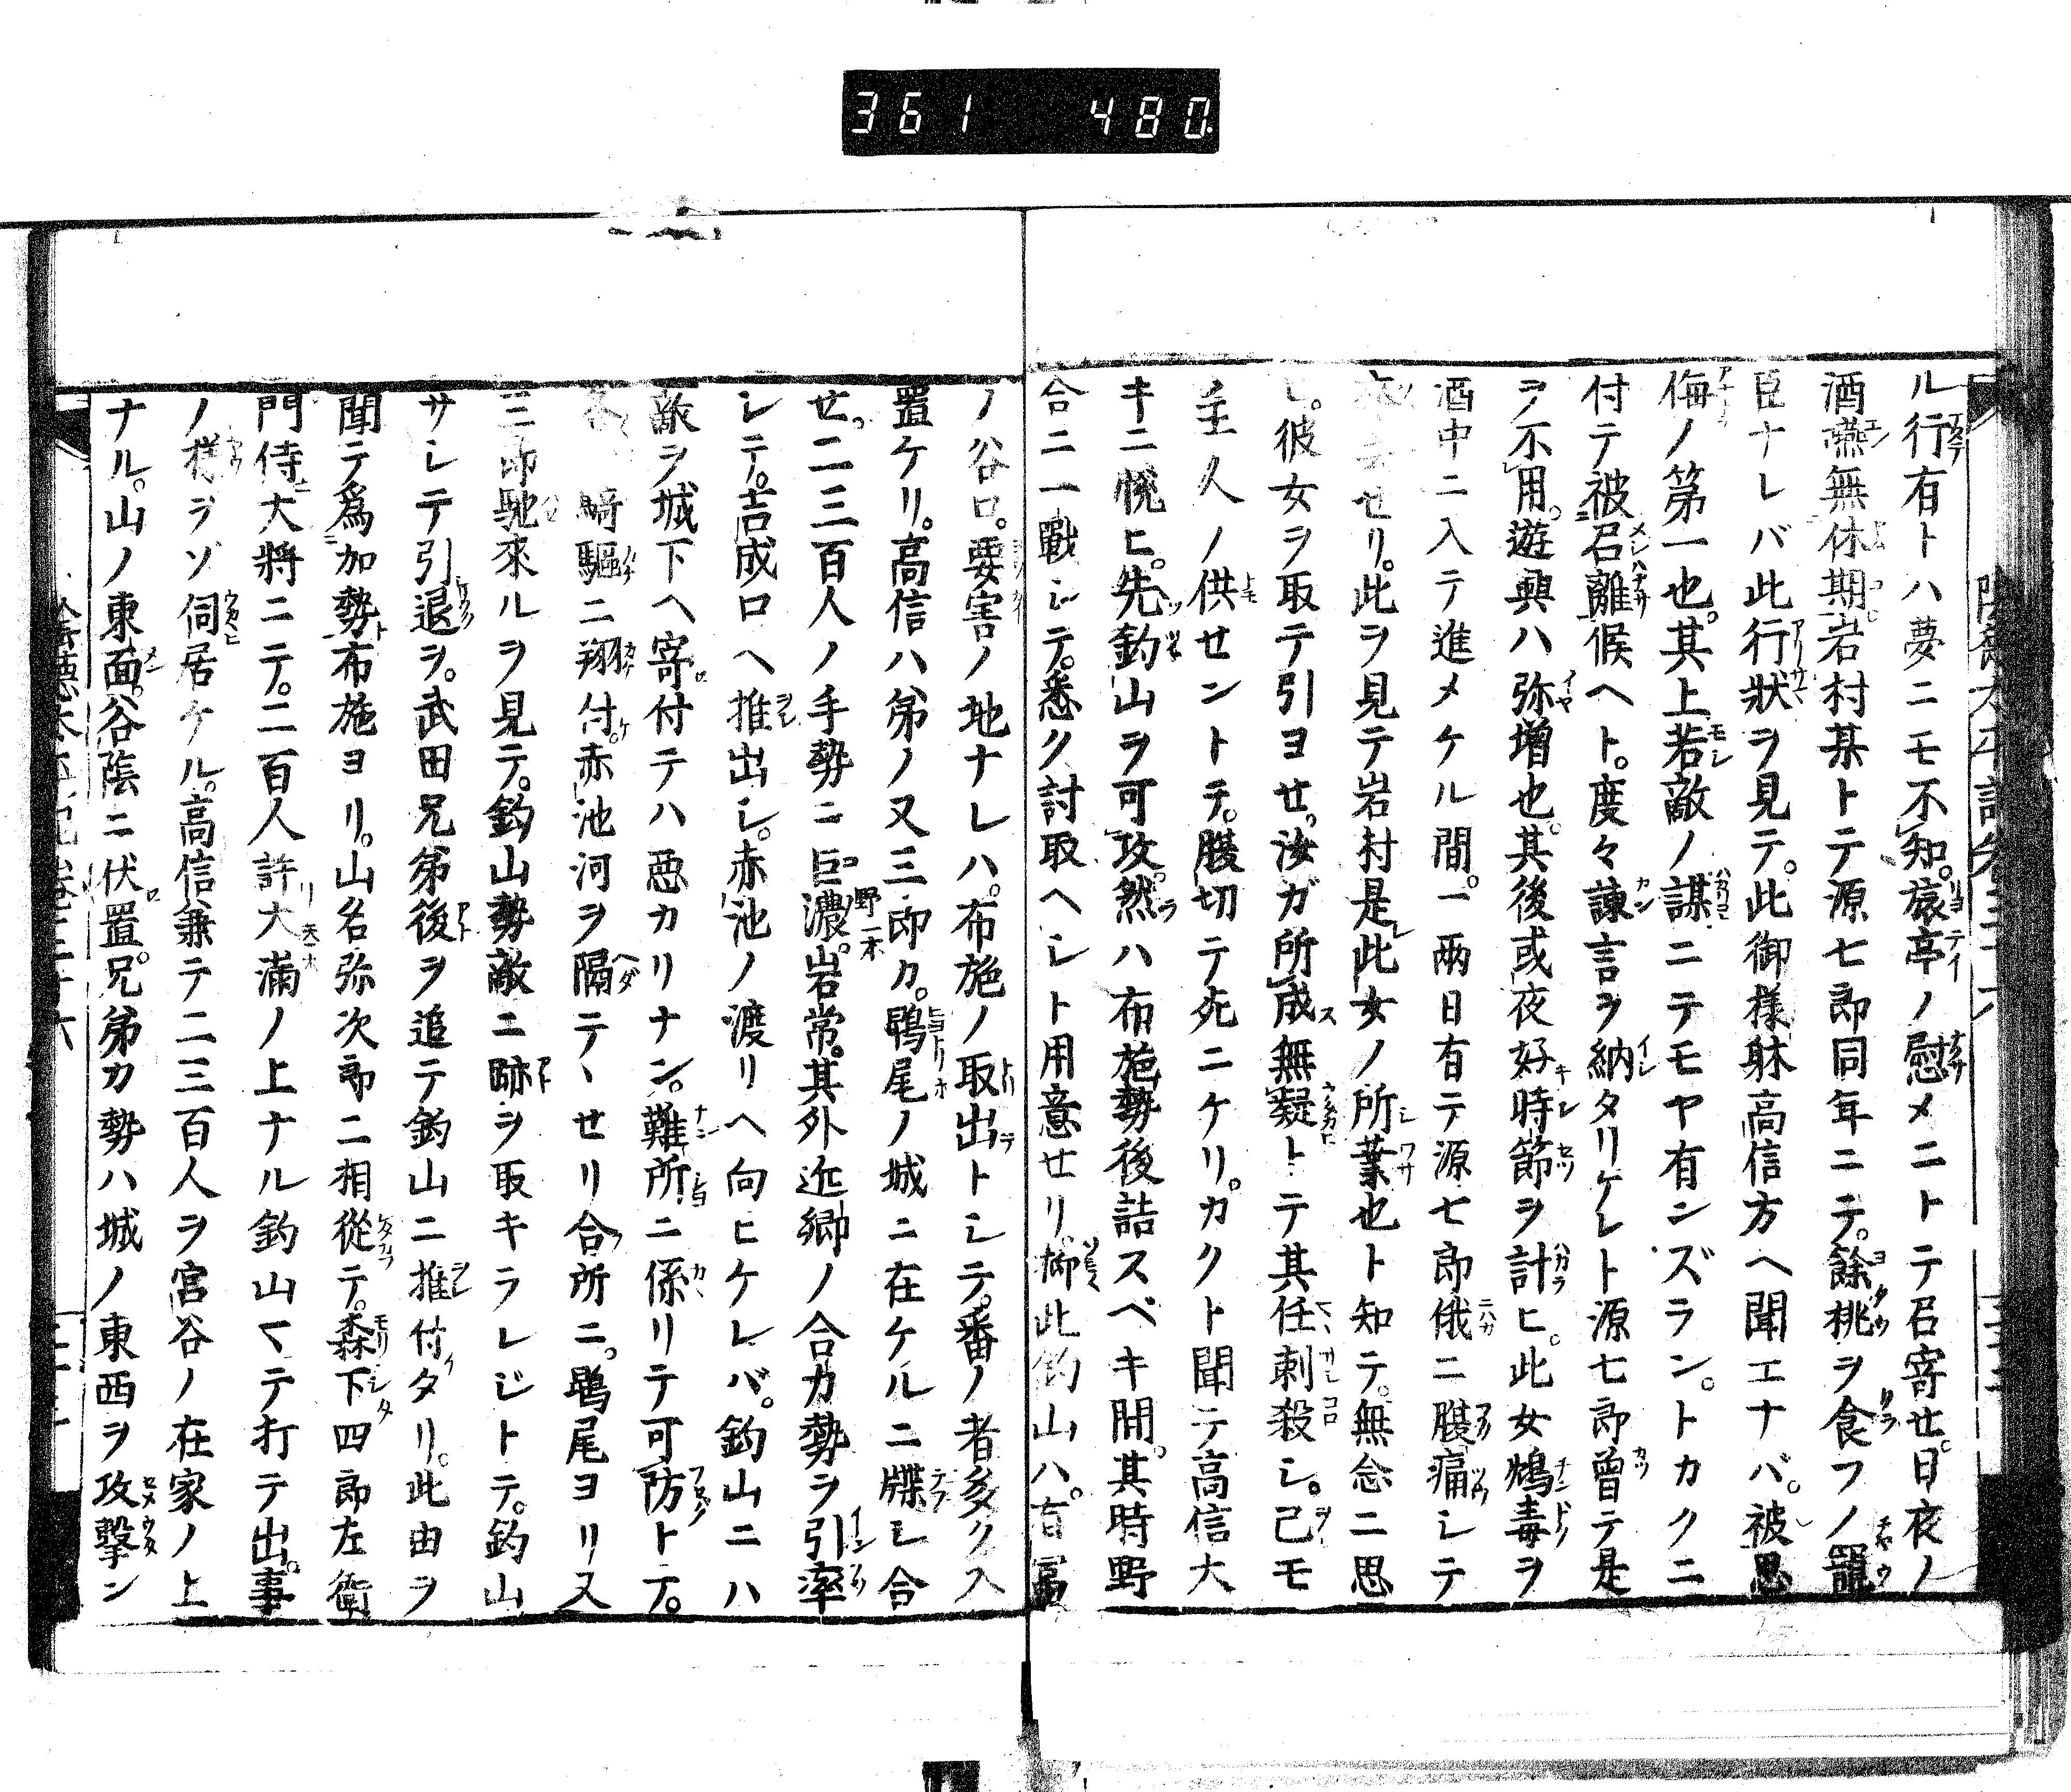 361 480
ル行有トハ夢ニモ不知。旅亭ノ慰メニトテ召寄せ。日夜ノ
酒嚥無休期。岩村某トテ源七郎同年ニテ。餘桃ヲ食フノ寵
臣ナレバ此行狀ヲ見テ。此御様躰高信方ヘ聞エナバ。被思
侮ノ第一也。其上若敵ノ謀ニテモヤ有ンズラン。トカクニ
付テ被召離候ヘト。度々諫言ヲ納タリケレト源七郎曾テ是
ヲ不用。遊興ハ弥増也。其後或夜好時節ヲ計ヒ。此女鴆毒ヲ
酒中ニ入テ進メケル間。一両日有テ源七郎俄ニ腹痛シテ
せリ。此ヲ見テ岩村是此女ノ所業也ト知テ。無念ニ思
ヒ。彼女ヲ取テ引ヨせ。汝ガ所成無疑トテ其任刺殺シ。己モ
主人ノ供せントテ。腹切テ死ニケリ。カクト聞テ高信大
キニ悦ヒ。先釣山ヲ可攻。然ハ布施勢後詰スベキ間。其時野
合ニ一戰シテ。悉ク討取ヘシト用意せリ。抑此釣山ハ。有冨
ノ谷口。要害ノ地ナレハ。布施ノ取出トシテ。番ノ者多ク入
置ケリ。高信ハ弟ノ又三郎カ。鵯尾ノ城ニ在ケルニ牒シ合
せ。二三百人ノ手勢ニ巨濃。岩常。其外近郷ノ合力勢ヲ引率
シテ。吉成口ヘ推出シ。赤池ノ渡リヘ向ヒケレバ。釣山ニハ
敵ヲ城下ヘ寄付テハ悪カリナン。難所ニ係リテ可防トテ。
各騎驅ニ翔付。赤池河ヲ隔テヽせリ合所ニ。鵯尾ヨリ又
三郎馳來ルヲ見テ。釣山勢敵ニ跡ヲ取キラレジトテ。釣山
サシテ引退ヲ。武田兄弟後ヲ追テ釣山ニ推付タリ。此由ヲ
聞テ爲加勢布施ヨリ。山名弥次郎ニ相從テ。森下四郎左衛
門侍大將ニテ。二百人許大滿ノ上ナル釣山マテ打テ出。事
ノ様ヲゾ伺居ケル。高信兼テ二三百人ヲ宮谷ノ在家ノ上
ナル。山ノ東面。谷陰ニ伏置。兄弟カ勢ハ城ノ東西ヲ攻撃ン